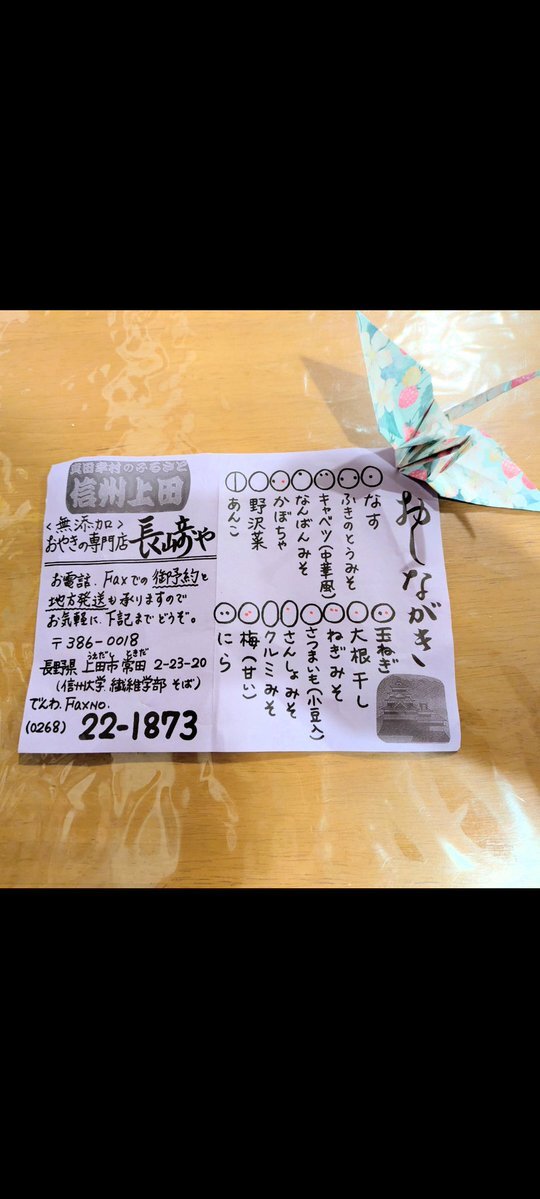 おしながき
なす
ふきのとうみそ
キャベツ(中華風)
なんばんみそ
かぼちゃ
野沢菜
あんこ
玉ねぎ
大根干し
ねぎみそ
さつまいも(小豆入)
さんしょみそ
クルミみそ
梅(甘い)
にら
真田幸村のふるさと
信州上田
<無添加>
おやきの専門店
お電話、Faxでの御予約と
地方発送も承りますので
お気軽に、下記までどうぞ。
〒386-0018
うえだし ときだ
長野県 上田市 常田 2-23-20
(信州大学 繊維学部 そば)
でんわ、FaxNO.
(0268) 22-1873